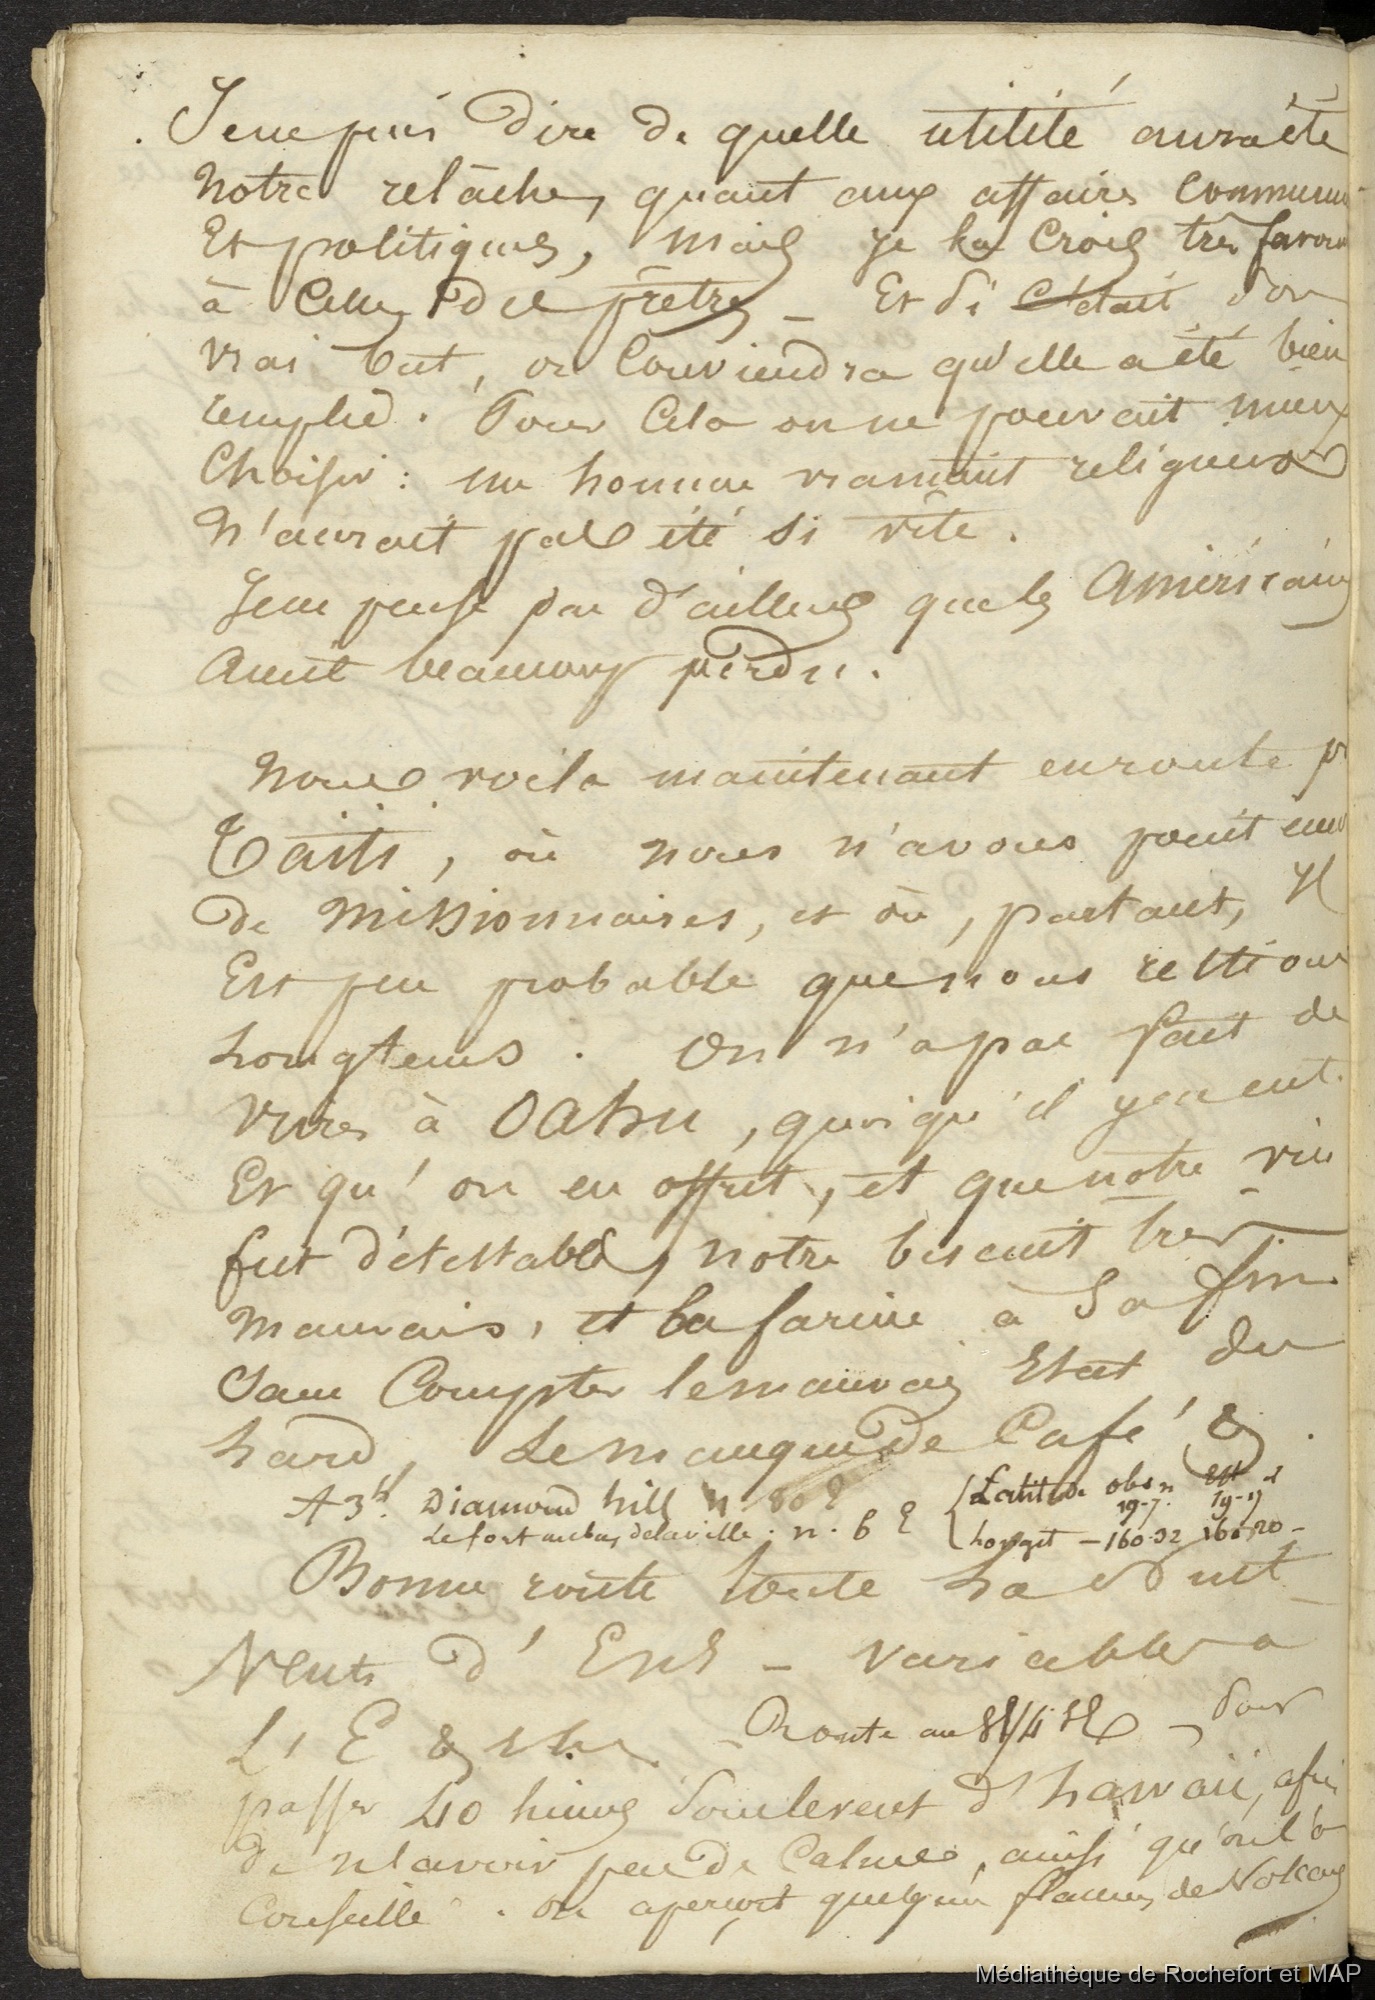 Jene puis dire de quelle utilité aura été
notre relâche, quant aux affaires
Et politiques, mais je la Crois très
à Celles des prêtres _ Et si C'était son
vrai but, on Conviendra qu'elle a été bien
remplie. Pour Cela on ne pouvait mieux
Choisir : un homme vraiment religieux
N'aurait pas été si vite.
Jene pense pas d'ailleurs que les Américains
Aient beaucoup perdu.
Nous voila maintenant enroute pr
Taïti, où nous n'avons point
de Missionnaires, et où, partant, Il
Est peu probable que nous restions
longtems. On n'a pas fait de
vivres à Oahu, quoiqu'il yen eut.
Et qu'on en offrit, et que notre vin
fut détestable, notre biscuit tres
mauvais, et la farine à sa fin
Sans Compter lemauvais Etat du
lard, Le manque de Café &.
A 3h. Diamond hill N. 80 E
Lefort aubas delaville. n. 6 E
Latitude obs n. Est
19-7. 19-
Longit - 160.32 160.20 -
Bonne route toute La Nuit _
Vents d' Ene _ variables a
L' E & Route au _ Pour
passer 40 lieues Sous levent d'hawaii, afin
de n'avoir peu de Calmes, ainsi qu'on l'a
Conseillé. On aperçoit quelques flammes de Volcans
Médiathèque de Rochefort et MAP